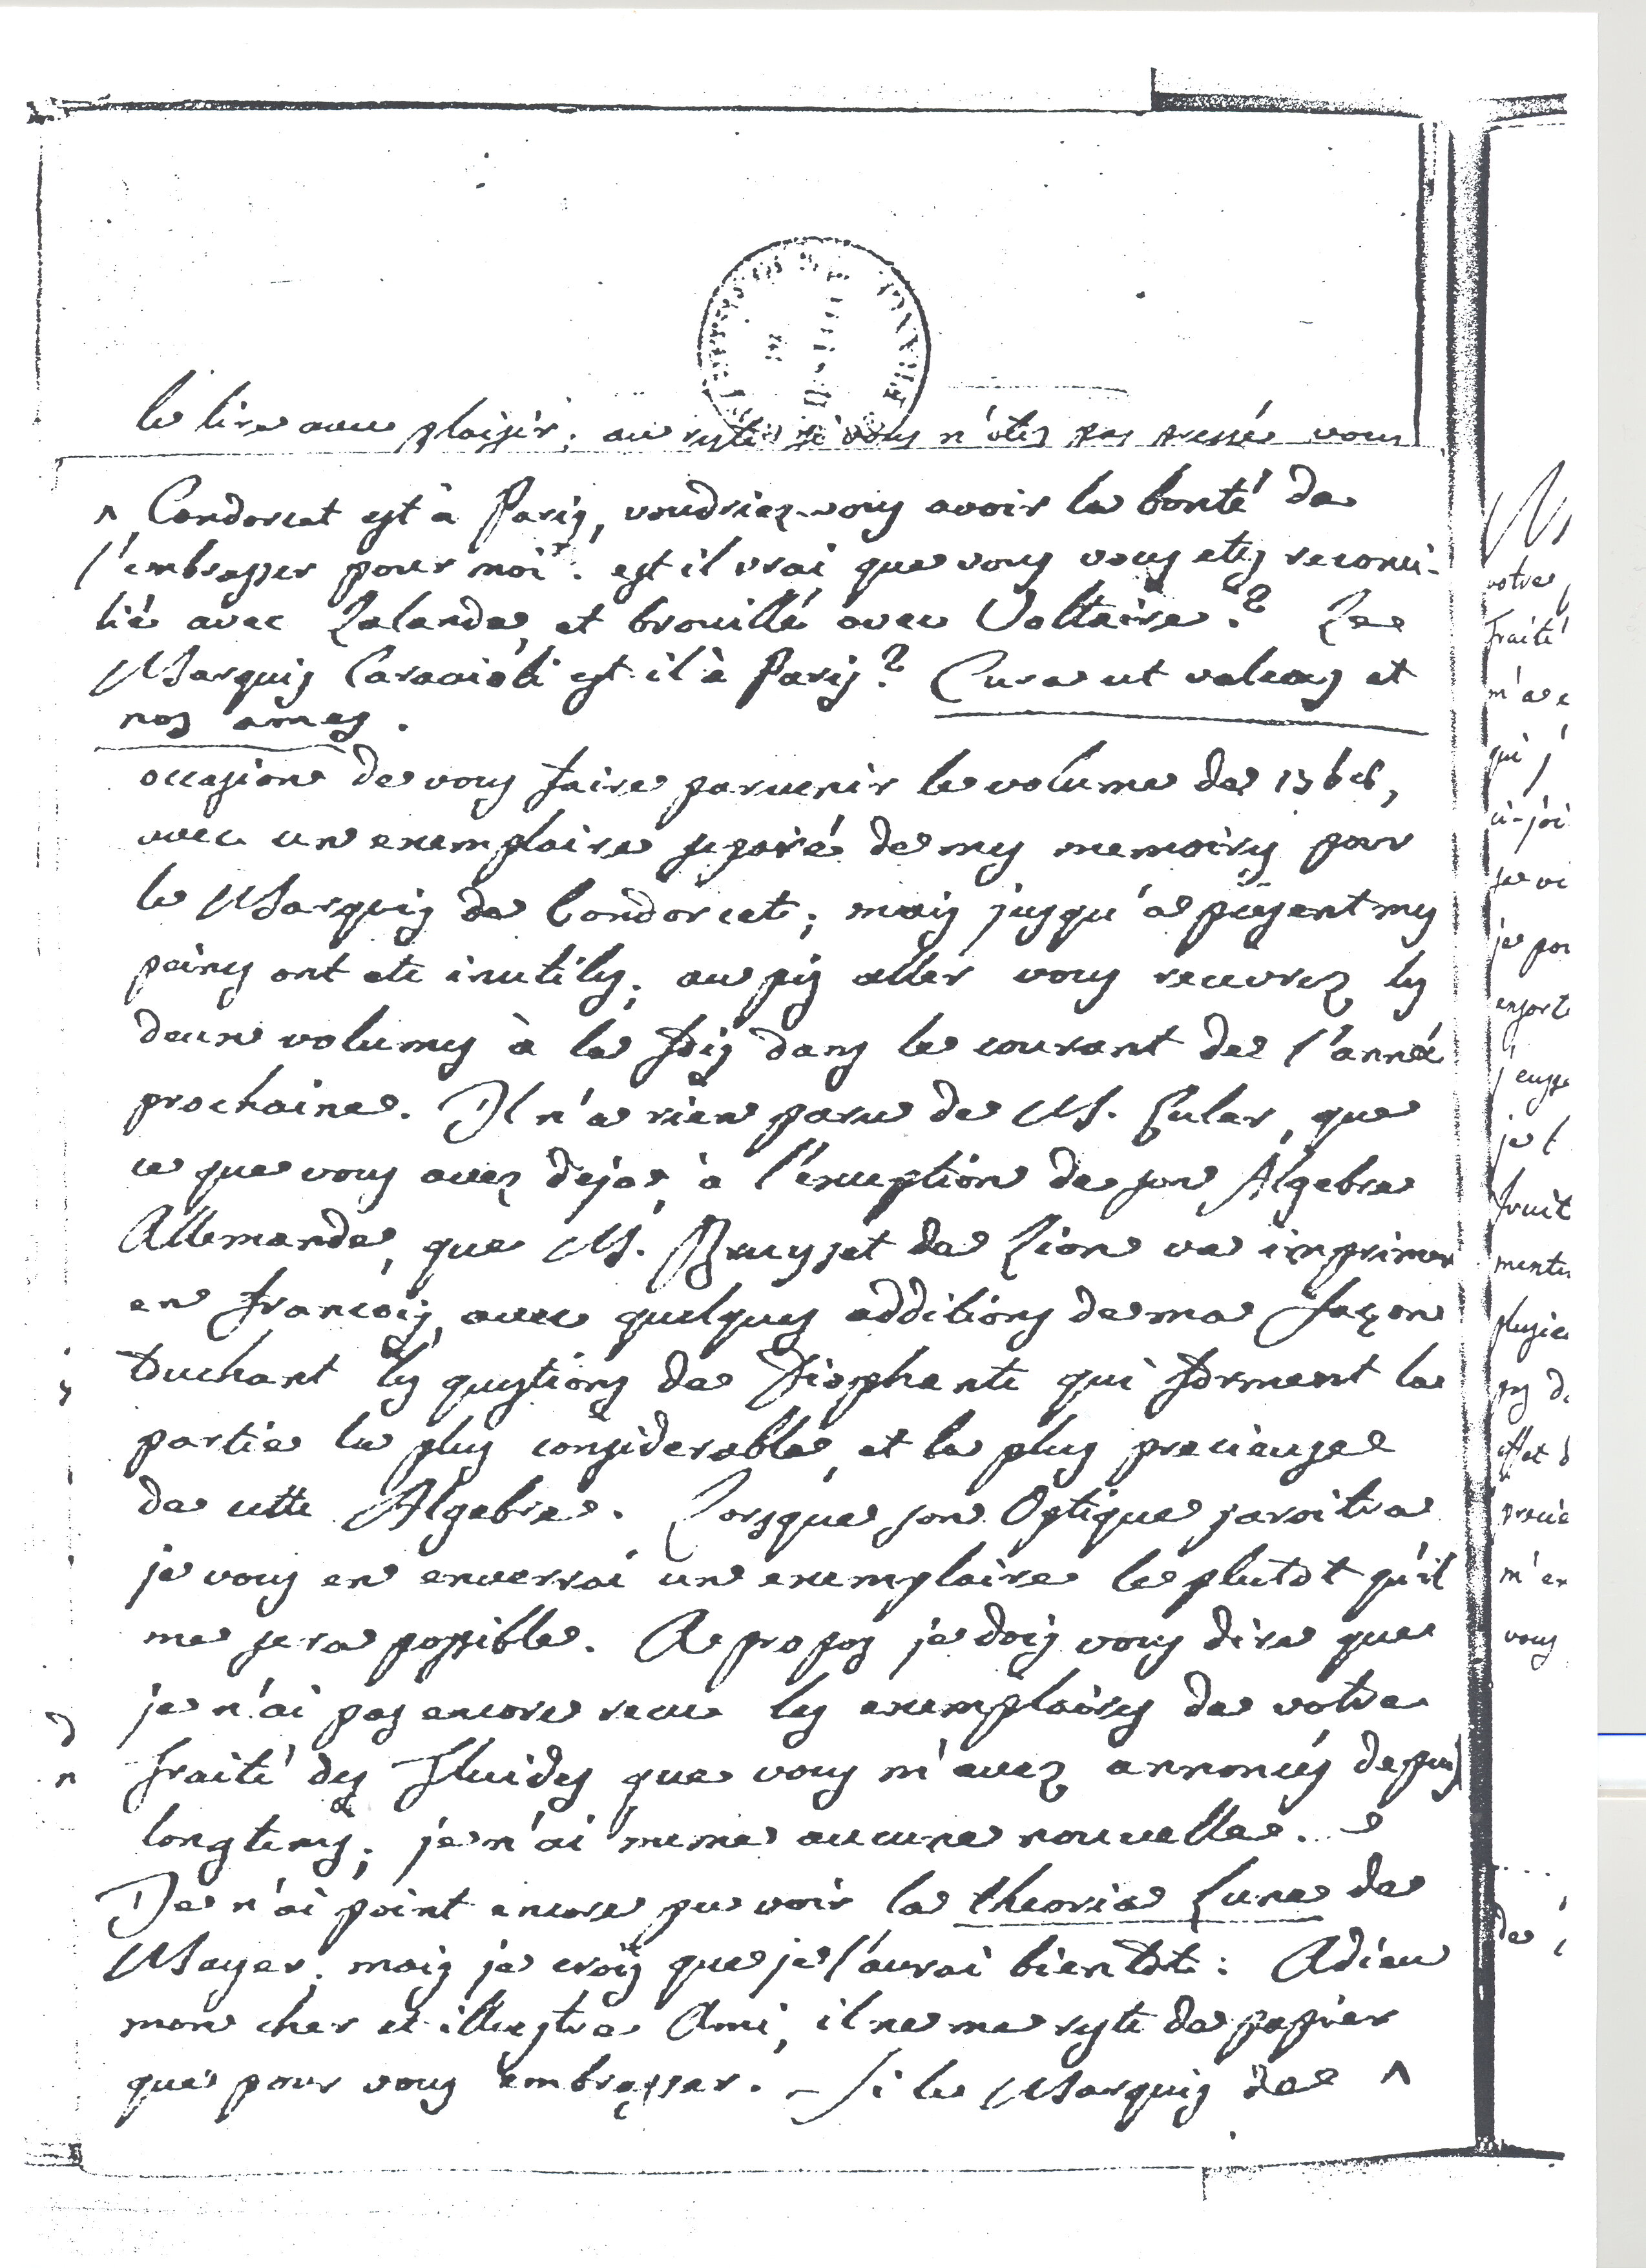 le lire avec plaisir; au reste si vous n'étes pas pressé vous
^ Condorcet est à Paris, voudriez-vous avoir la bonté de
l'embrasser pour moi? est il vrai que vous vous etes reconci-
lié avec Lalande, et brouillé avec Voltaire? Le
Marquis Caraccioli est-il à Paris? Cura ut valeas et
nos ames.
occasion de vous faire parvenir le volume de
avec un exemplaire separé de mes memoires pour
le Marquis de Condorcet; mais jusqu'à présent mes
peines ont eté inutiles; au pis aller vous recevrez les
deux volumes à la fois dans le courant de l'année
prochaine. Il n'a rien paru de M. Euler, que
ce que vous avez deja, à l'exception de son Algebre
Allemande, que M. Bruyset de Lion va imprimer
en francois, avec quelques additions de ma façon
touchant les questions de Diophante qui forment la
partie la plus considerable, et la plus precieuse
de cette Algebre. Lorsque son Optique paroitra
je vous en enverrai un exemplaire le plutot qu'il
me sera possible. A propos je dois vous dire que
je n'ai pas encore recu les exemplaires de votre
traité des fluides que vous m'avez annoncés depuis
longtems; je n'ai meme aucune nouvelle.
Je n'ai point encore pu voir la theoria Lunae de
Mayer; mais je crois que je l'aurai bientot: Adieu
mon cher et illustre Ami, il ne me reste de papier
que pour vous embrasser. – Si le Marquis de ^
votre
traité
m'a
qui j
ci-joi
je
je pou
ensorte
j'eusse
je l
fruit
mente
plusie
pas d
effet d
precie
m'en
vous
de